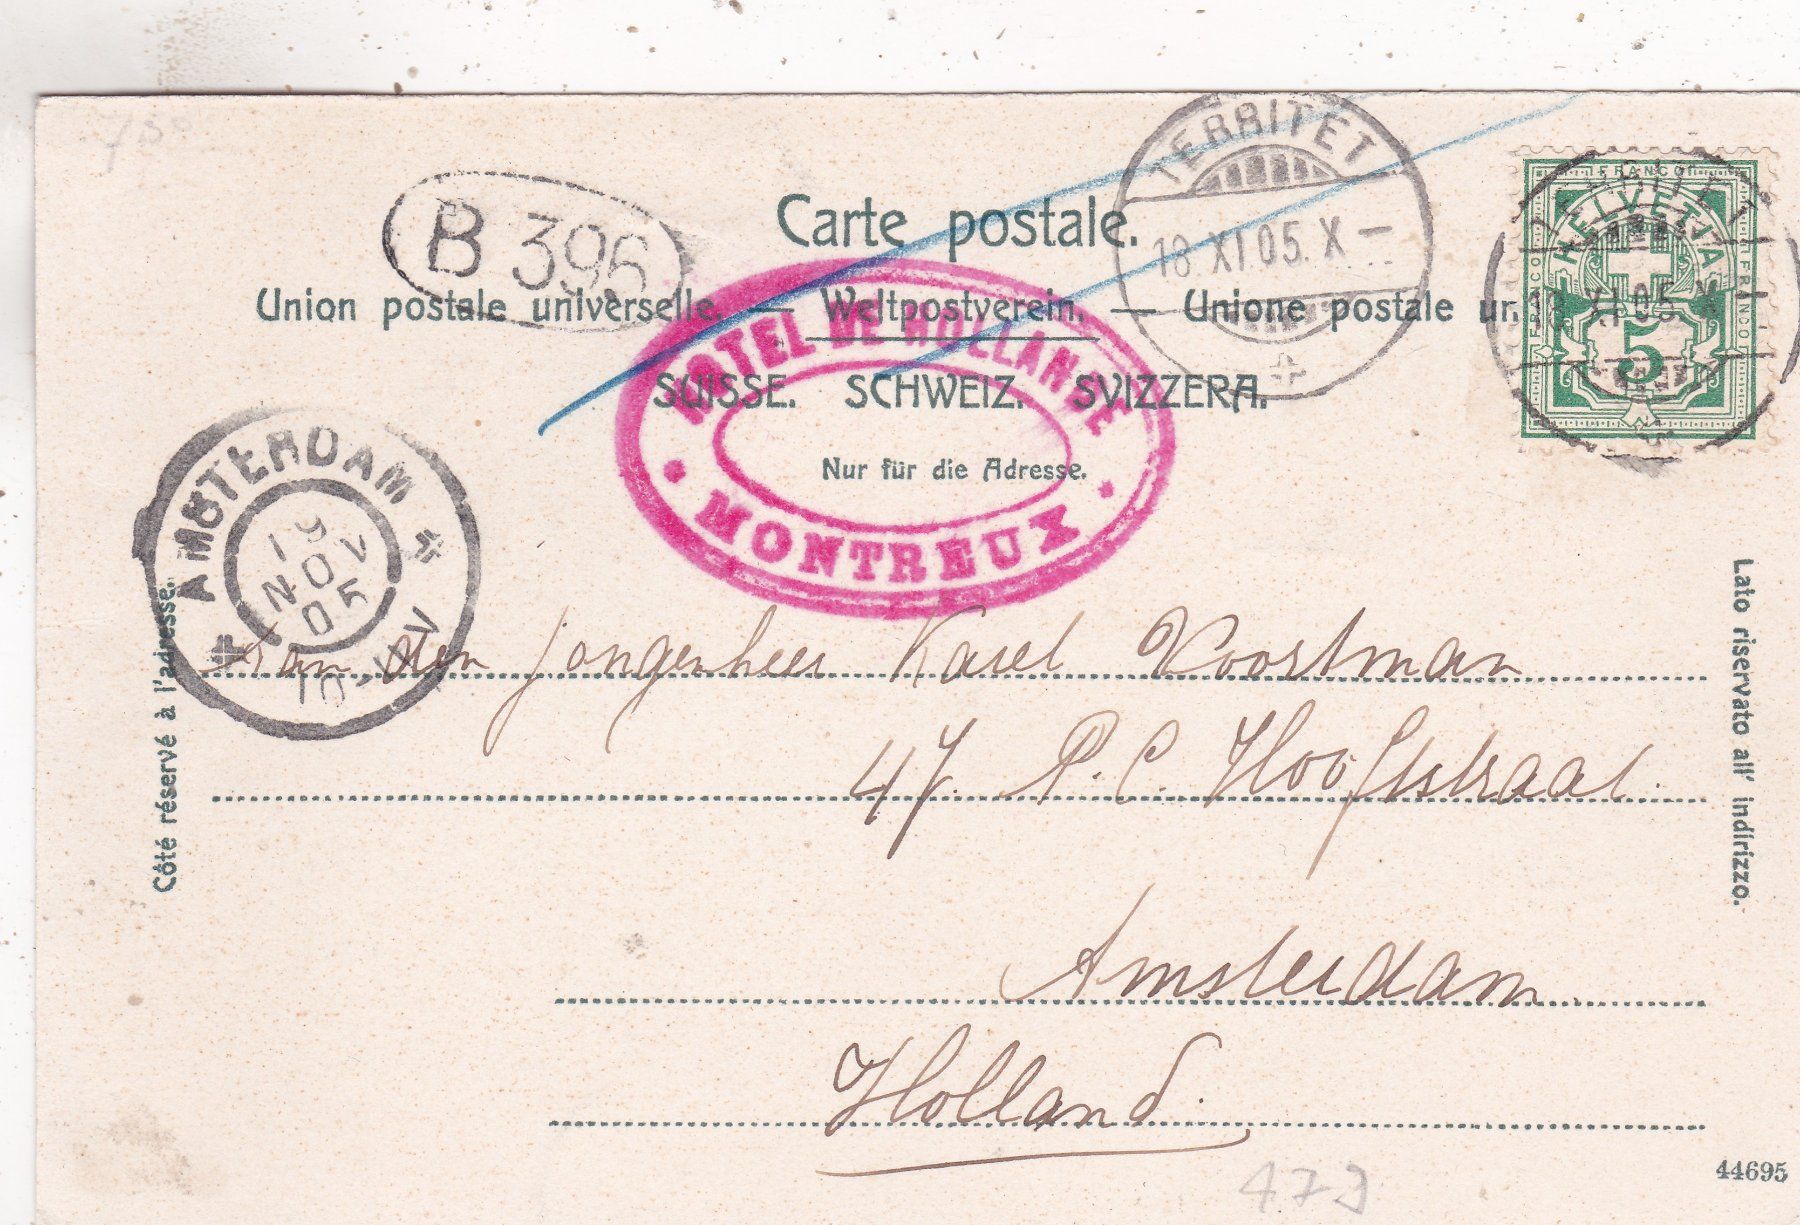 B 396
Carte postale.
TERRITET
18.XI.05.X–
FRANCO
HELVETIA
FRANCO
FRANCO
5
TERRITET
18.XI.05.X–
Union postale universelle. — Weltpostverein. — Unione postale un.
HOTEL DE HOLLANDE
MONTREUX
SUISSE. SCHWEIZ. SVIZZERA.
Nur für die Adresse.
AMSTERDAM
19
NOV
05
10-11V
Côté réservé à l'adresse.
Lato riservato all' indirizzo.
Aan den jongenheer Karel Voortman
47. P. C. Hooftstraat.
Amsterdam.
Holland.
44695
473